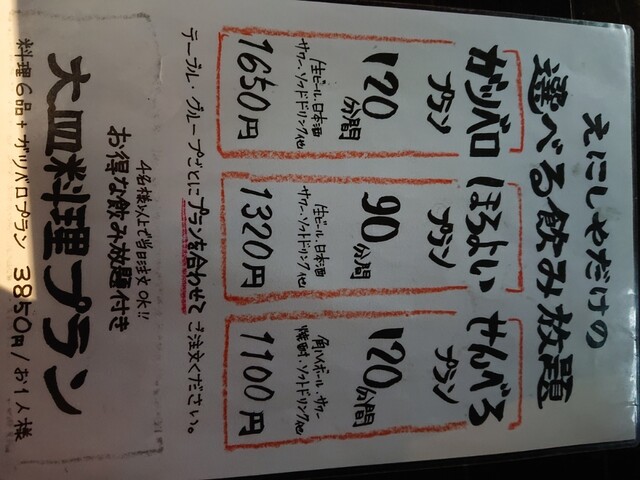 えにしやだけの
選べる飲み放題
ガッツバロ
プラン
120
分間
生ビール・日本酒
サワー・ソフトドリンク他
1650円
ほろよい
プラン
90
分間
生ビール・日本酒
サワー・ソフトドリンク他
1320円
せんべろ
プラン
120
分間
角ハイボール・サワー
焼酎・ソフトドリンク他
1100円
テーブル・グループごとにプランを合わせてご注文ください。
4名様以上で当日注文OK!!
お得な飲み放題付き
大皿料理プラン
料理6品+ガッツバロプラン 3850円/お1人様